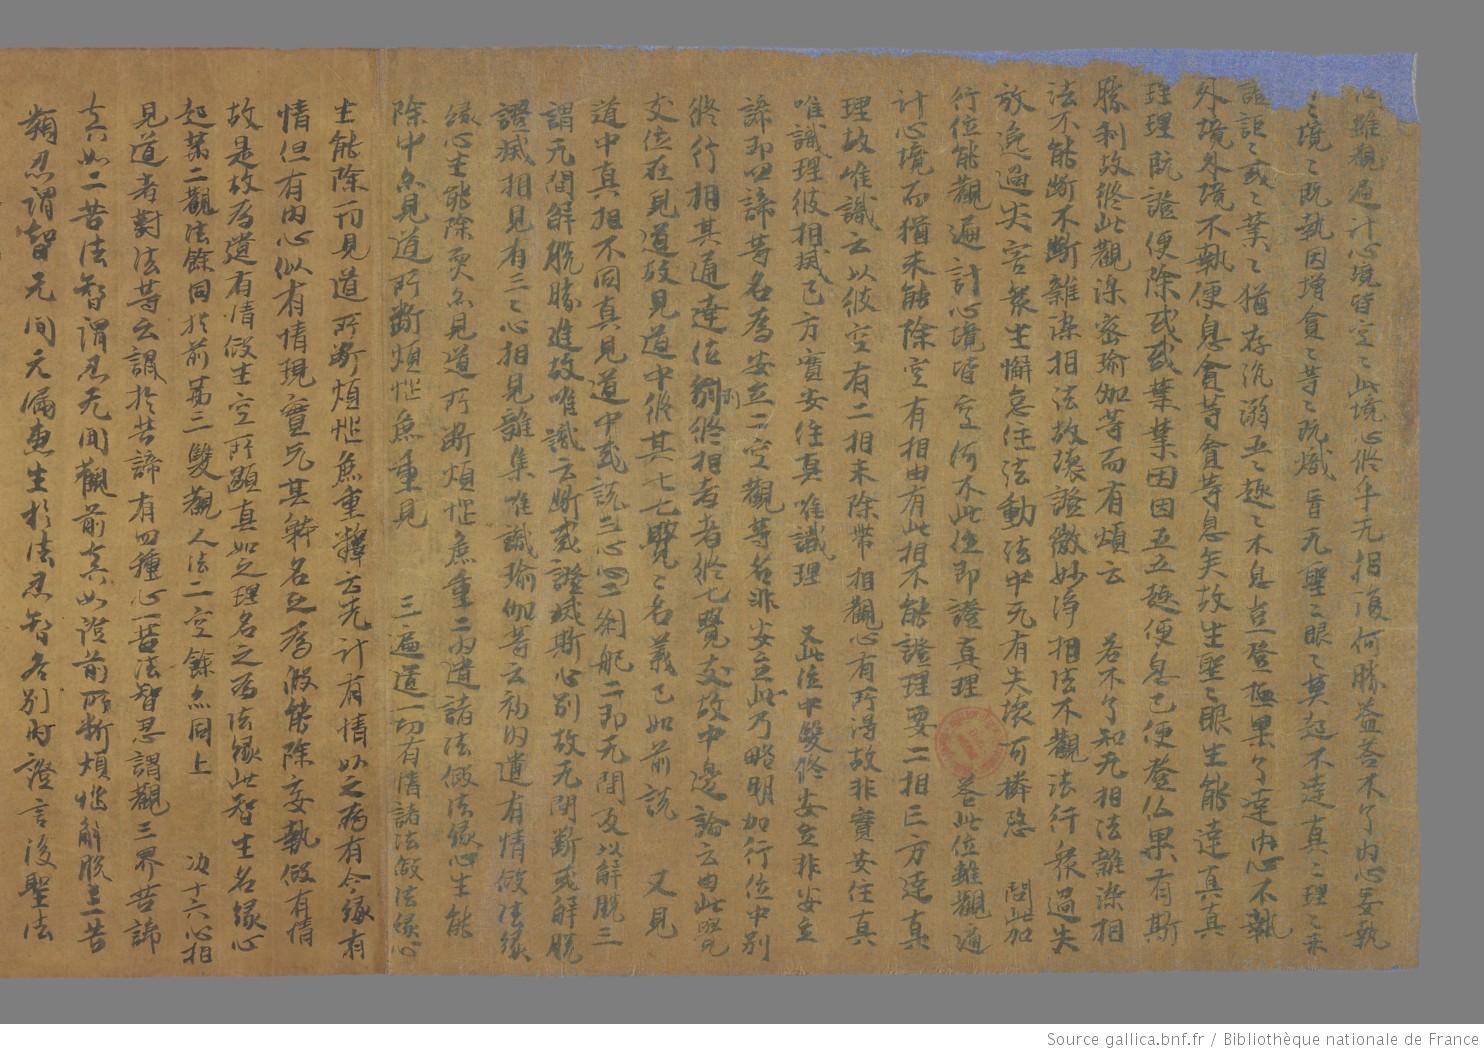 雖觀遍計心境皆空之此境心終年无捐復何勝益荅不了內心妄執
境〻既執因增貪〻等〻既熾盲无聖〻眼〻莫起不達真〻理〻未
證詎〻或〻業〻猶存沉溺五〻趣〻不息豈登極果了達內心不執
外境外境不執便息貪等貪等息矣故生聖〻眼生能達真真
理理既證便除或或業業因因五五趣便息已便登仏果有斯
勝利故終此觀深密瑜伽等而有頌云 若不了知无相法雜染相
法不能斷不斷雜染相法故壞證微妙淨相法不觀法行眾過失
放逸過失害眾生懈怠住法動法中无有失壞可憐愍 問此加
行位能觀遍計心境皆空何不此位即證真理 荅此位雖觀遍
計心境而猶未能除空有相由有此相不能證理要二相亡方達真
理故唯識云以彼空有二相未除帶相觀心有所得故非實安住真
唯識理彼相滅已方實安住真唯識理 又此位中雙修安立非安立
諦即四諦等名為安立二空觀等名非安立此乃略明加行位中別
修行相其通達位別修相者者修七覺支故中邊論云由此覺
支位在見道故見道中修其七七覺〻名義已如前說 又見
道中真相不同真見道中或說三心四剎那二即无間及以解脫三
謂无間解脫勝進故唯識云斷或證滅斯心別故无間斷或解脫
證滅相見有三〻心相見雜集唯識瑜伽等云初內遣有情假法緣
緣心生能除耎品見道所斷煩惱麁重二內遣諸法假法緣心生能
除中品見道所斷煩惱麁重見 三遍遣一切有情諸法假法緣心
生能除一切見道所斷煩惱麁重釋云先計有情妙之為有今緣有
情但有內心似有情現實无其躰名之為假能除妄執假有情
故是故為遣有情假生空所顯真如之理名之為法緣此智生名緣心
起第二觀法餘同於前第三雙觀人法二空餘亦同上 次十六心相
見道者對法等云謂於苦諦有四種心一苦法智忍謂觀三界苦諦
真如二苦法智謂忍无間觀前真如證前所斷煩惱解脫三苦
類忍謂智无間无漏惠生於法忍智各別內證言後聖法